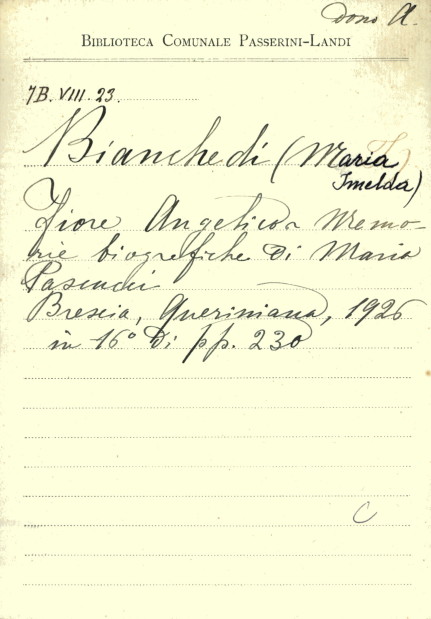 Dono A.
BIBLIOTECA COMUNALE PASSERINI-LANDI
7B. VIII. 23.
Bianchedi (Maria
Imelda)
Fiore Angelico Memo-
rie biografiche di Maria
Brescia, Queriniana, 1926
in 16° di pp. 230
C